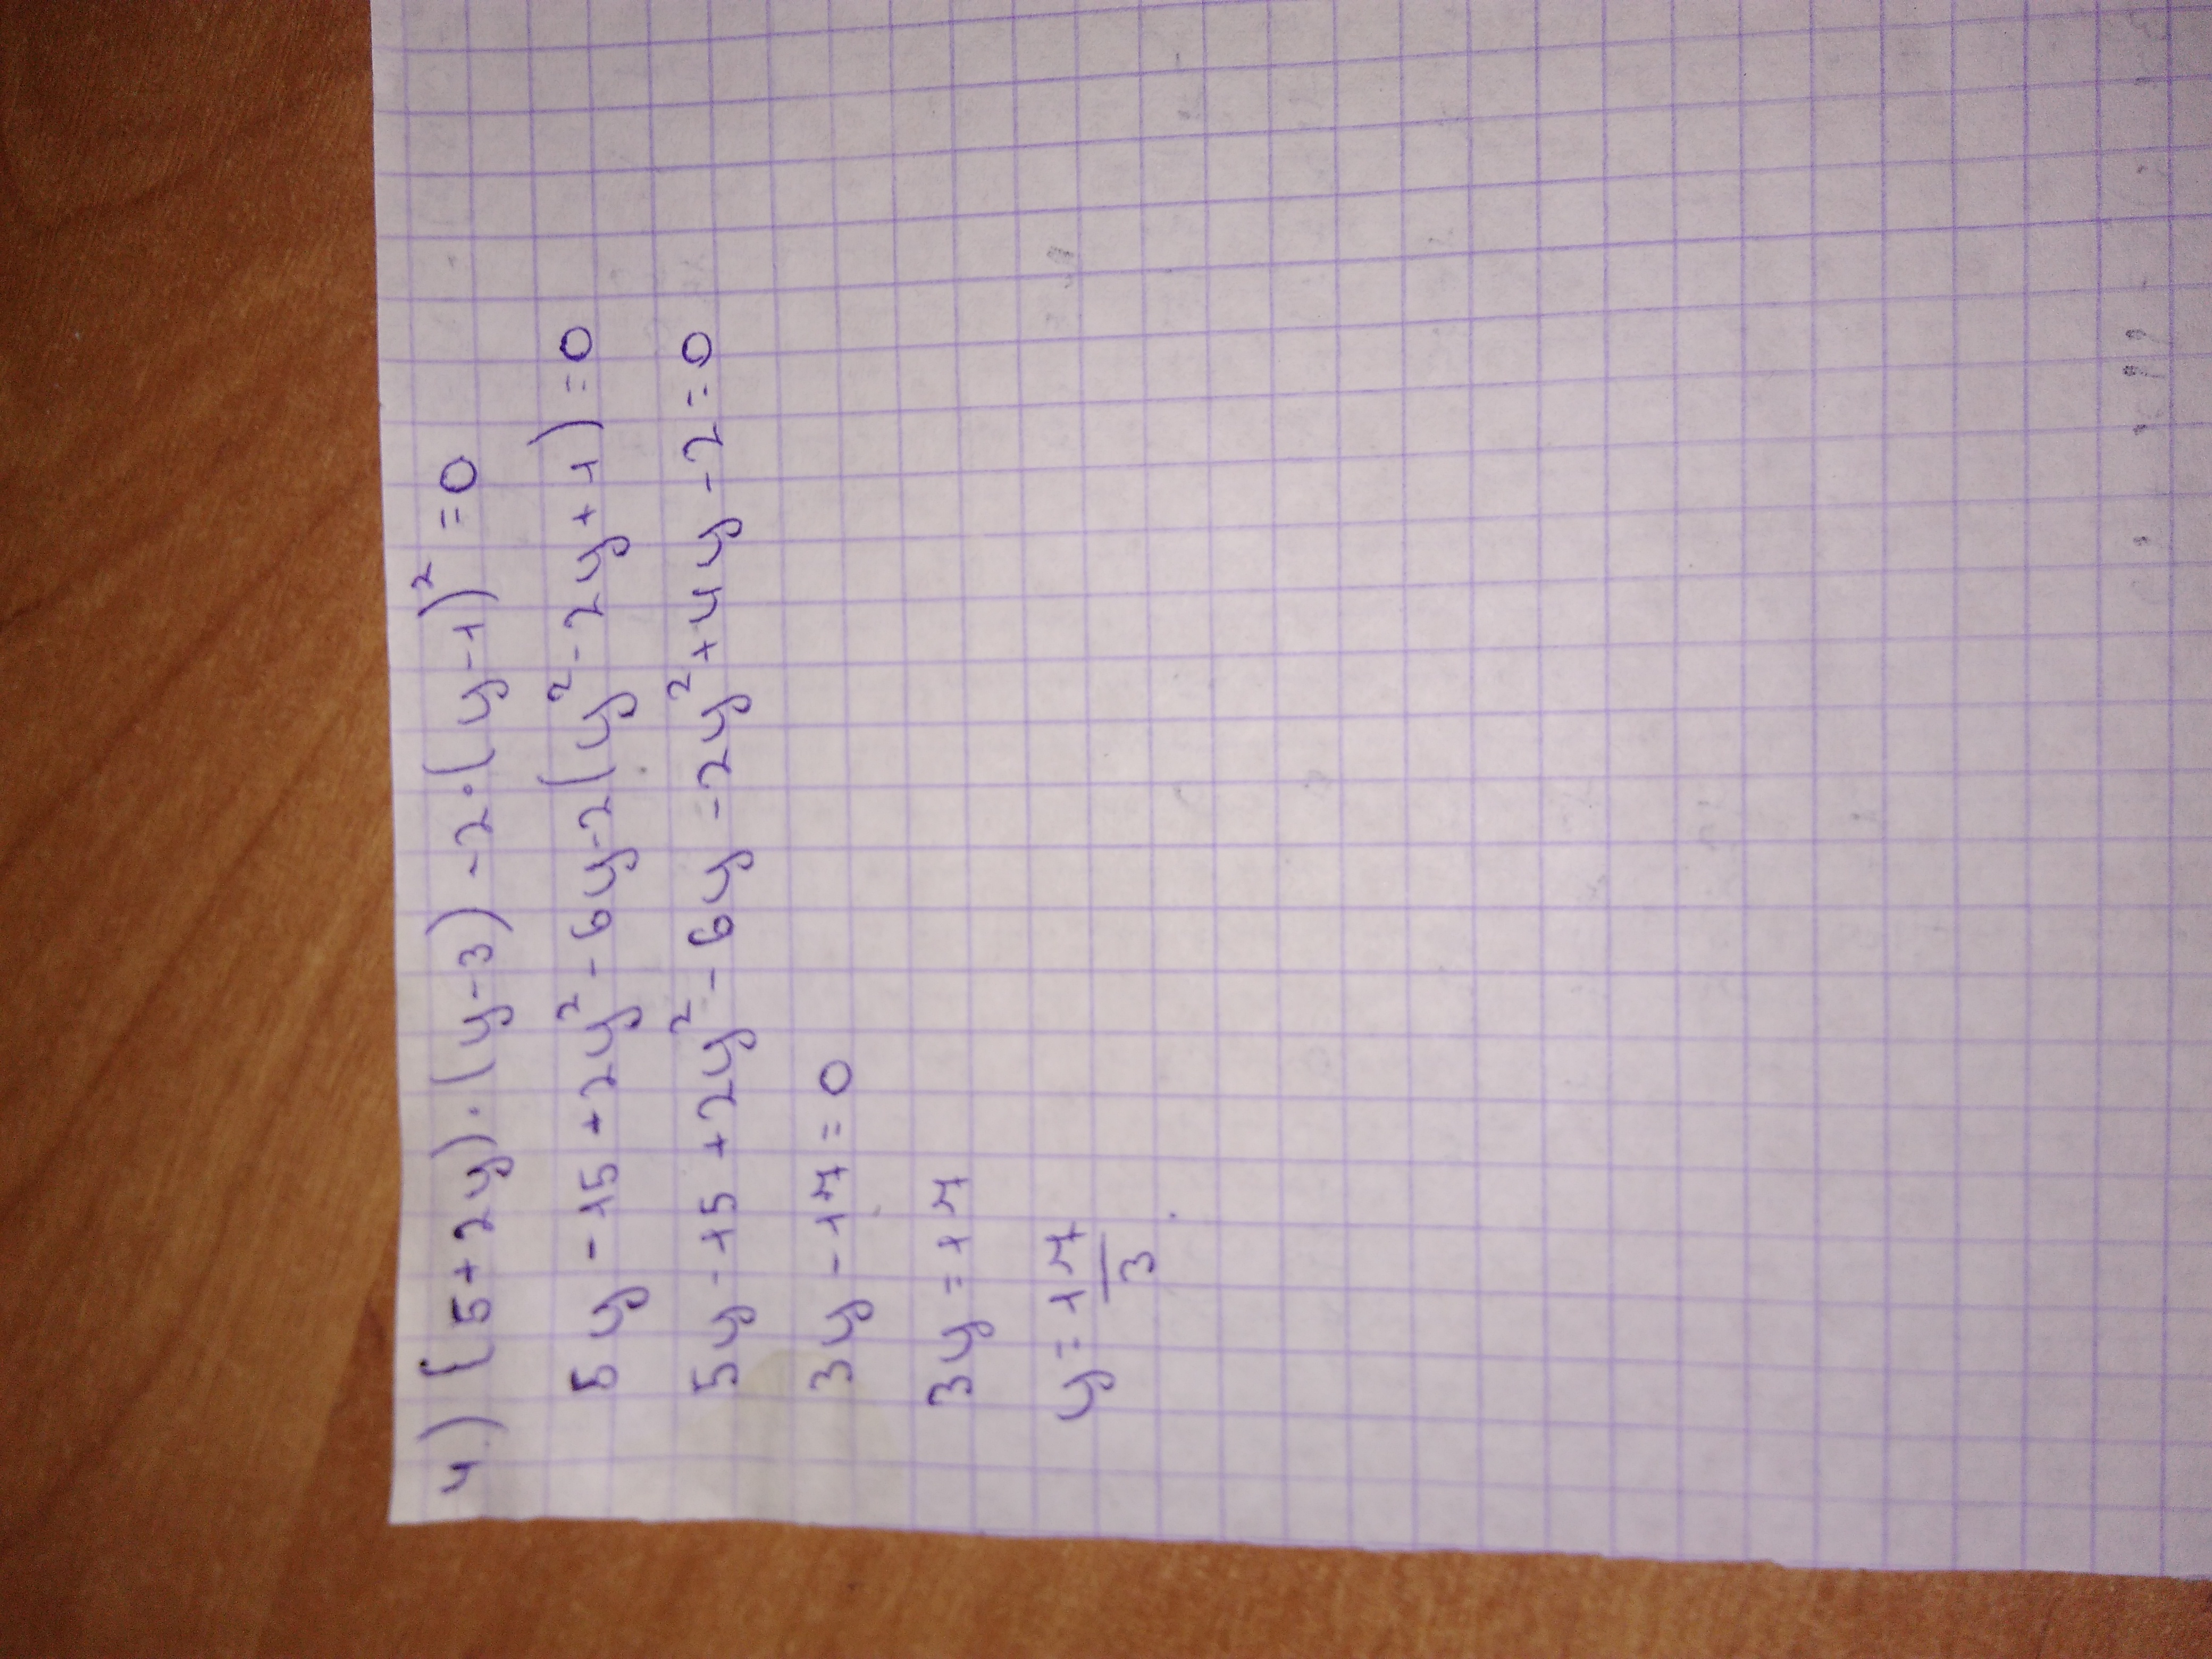 4) (5+2y)·(y-3)-2·(y-1)²=0
5y-15+2y²-6y-2(y²-2y+1)=0
5y-15+2y²-6y-2y²+4y-2=0
3y-17=0
3y=17
y=17/3